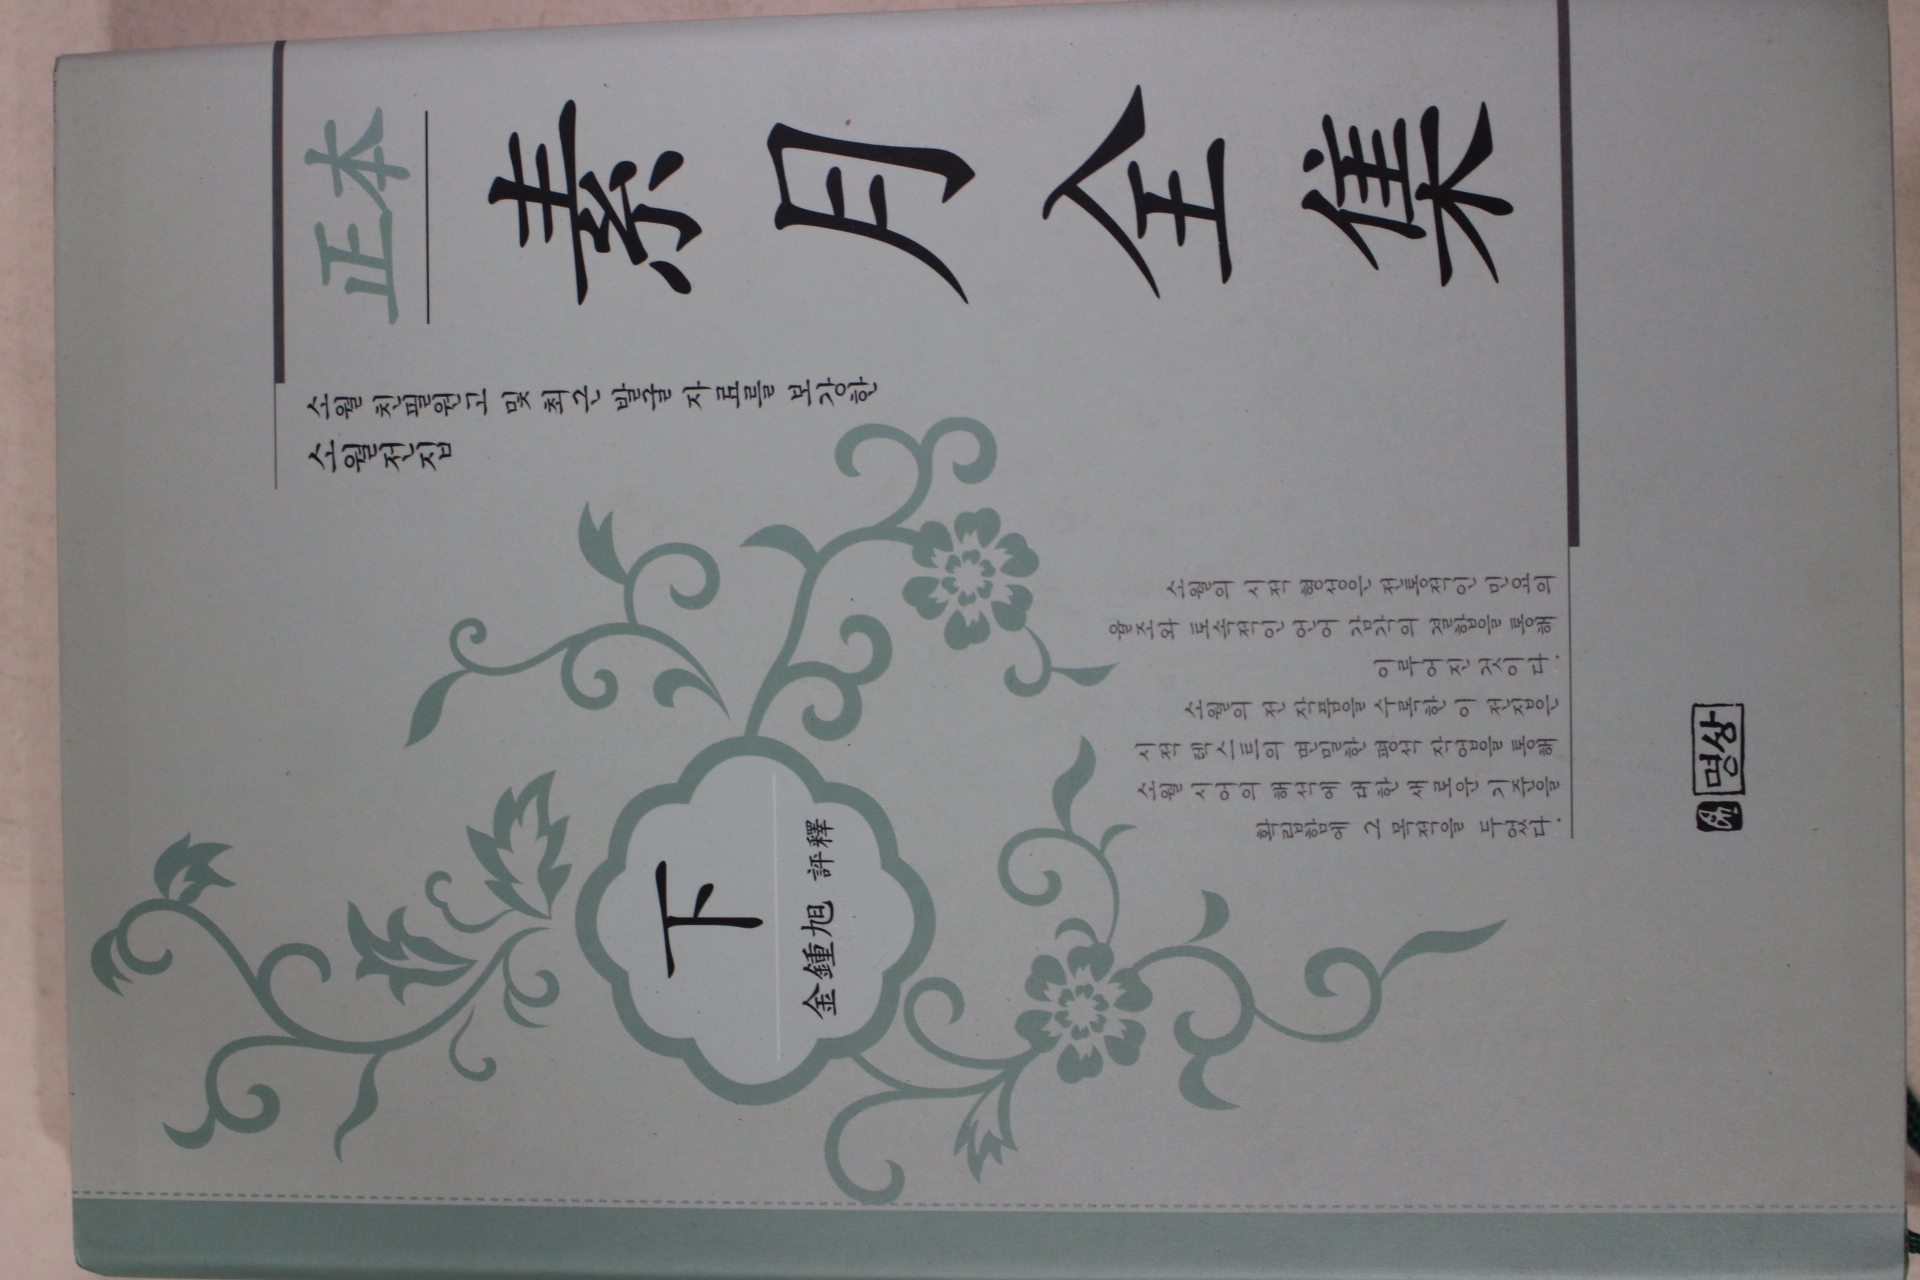 正本
素月全集
소월 친필원고 및 최근 발굴 자료를 보강한
소월전집
下
金鍾旭 評釋
소월의 시적 형성은 전통적인 민요의
율조와 토속적인 언어 감각의 결합을 통해
이루어진 것이다.
소월의 전 작품을 수록한 이 전집은
시적 텍스트의 면밀한 평석 작업을 통해
소월 시어의 해석에 대한 새로운 기준을
확립함에 그 목적을 두었다.
명상